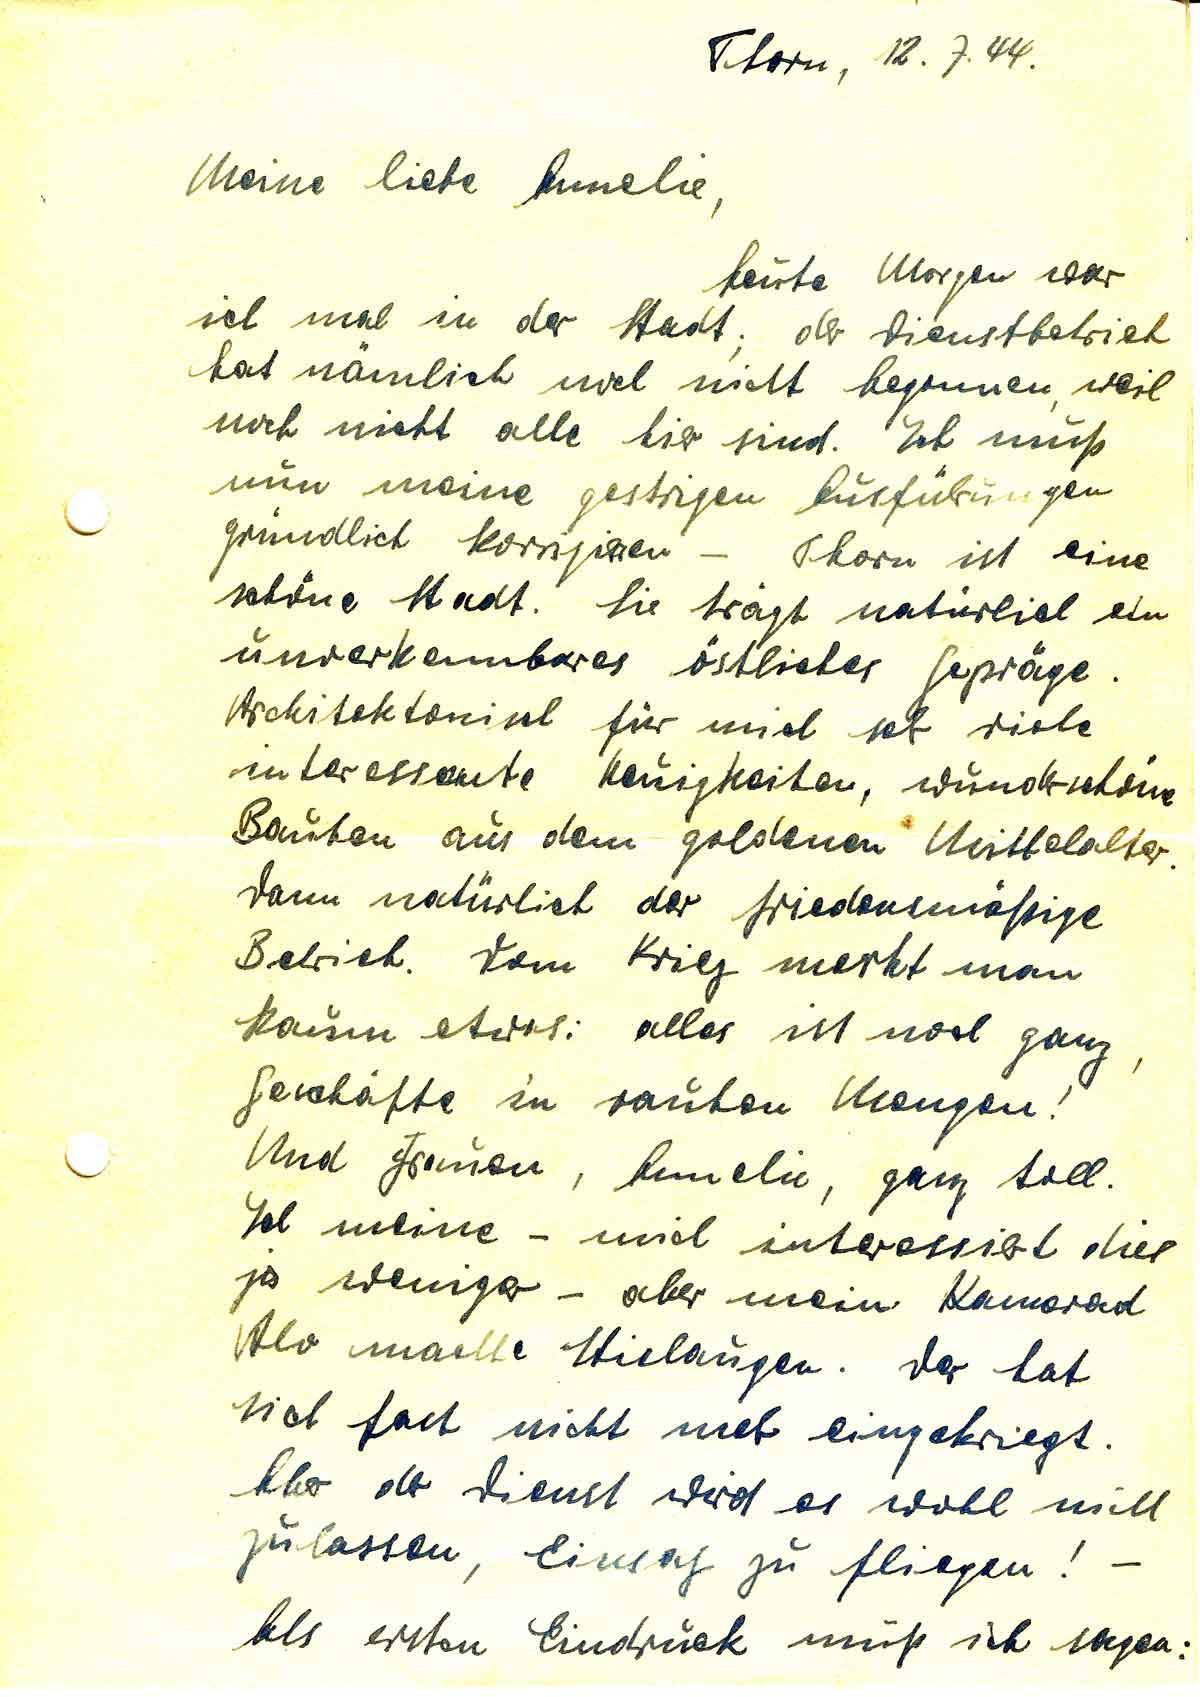 Thorn, 12. 7. 44.
Meine liebe Annelie,
heute Morgen war
ich mal in der Stadt; der Dienstbetrieb
hat nämlich noch nicht begonnen, weil
noch nicht alle hier sind. Ich muß
nun meine gestrigen Ausführungen
gründlich korrigieren – Thorn ist eine
schöne Stadt. Sie trägt natürlich ein
unverkennbares östliches Gepräge.
Architektonisch für mich sehr viele
interessante Neuigkeiten, wunderschöne
Bauten aus dem goldenen Mittelalter.
Dann natürlich der friedensmäßige
Betrieb. Vom Krieg merkt man
kaum etwas: alles ist noch ganz,
Geschäfte in rauhen Mengen!
Und Frauen, Annelie, ganz toll.
Ich meine – mich interessiert dies
ja weniger – aber mein Kamerad
Alo machte Stielaugen. Der hat
sich fast nicht mehr eingekriegt.
Aber der Dienst wird es wohl nicht
zulassen, Einsatz zu fliegen! –
Als ersten Eindruck muß ich sagen: